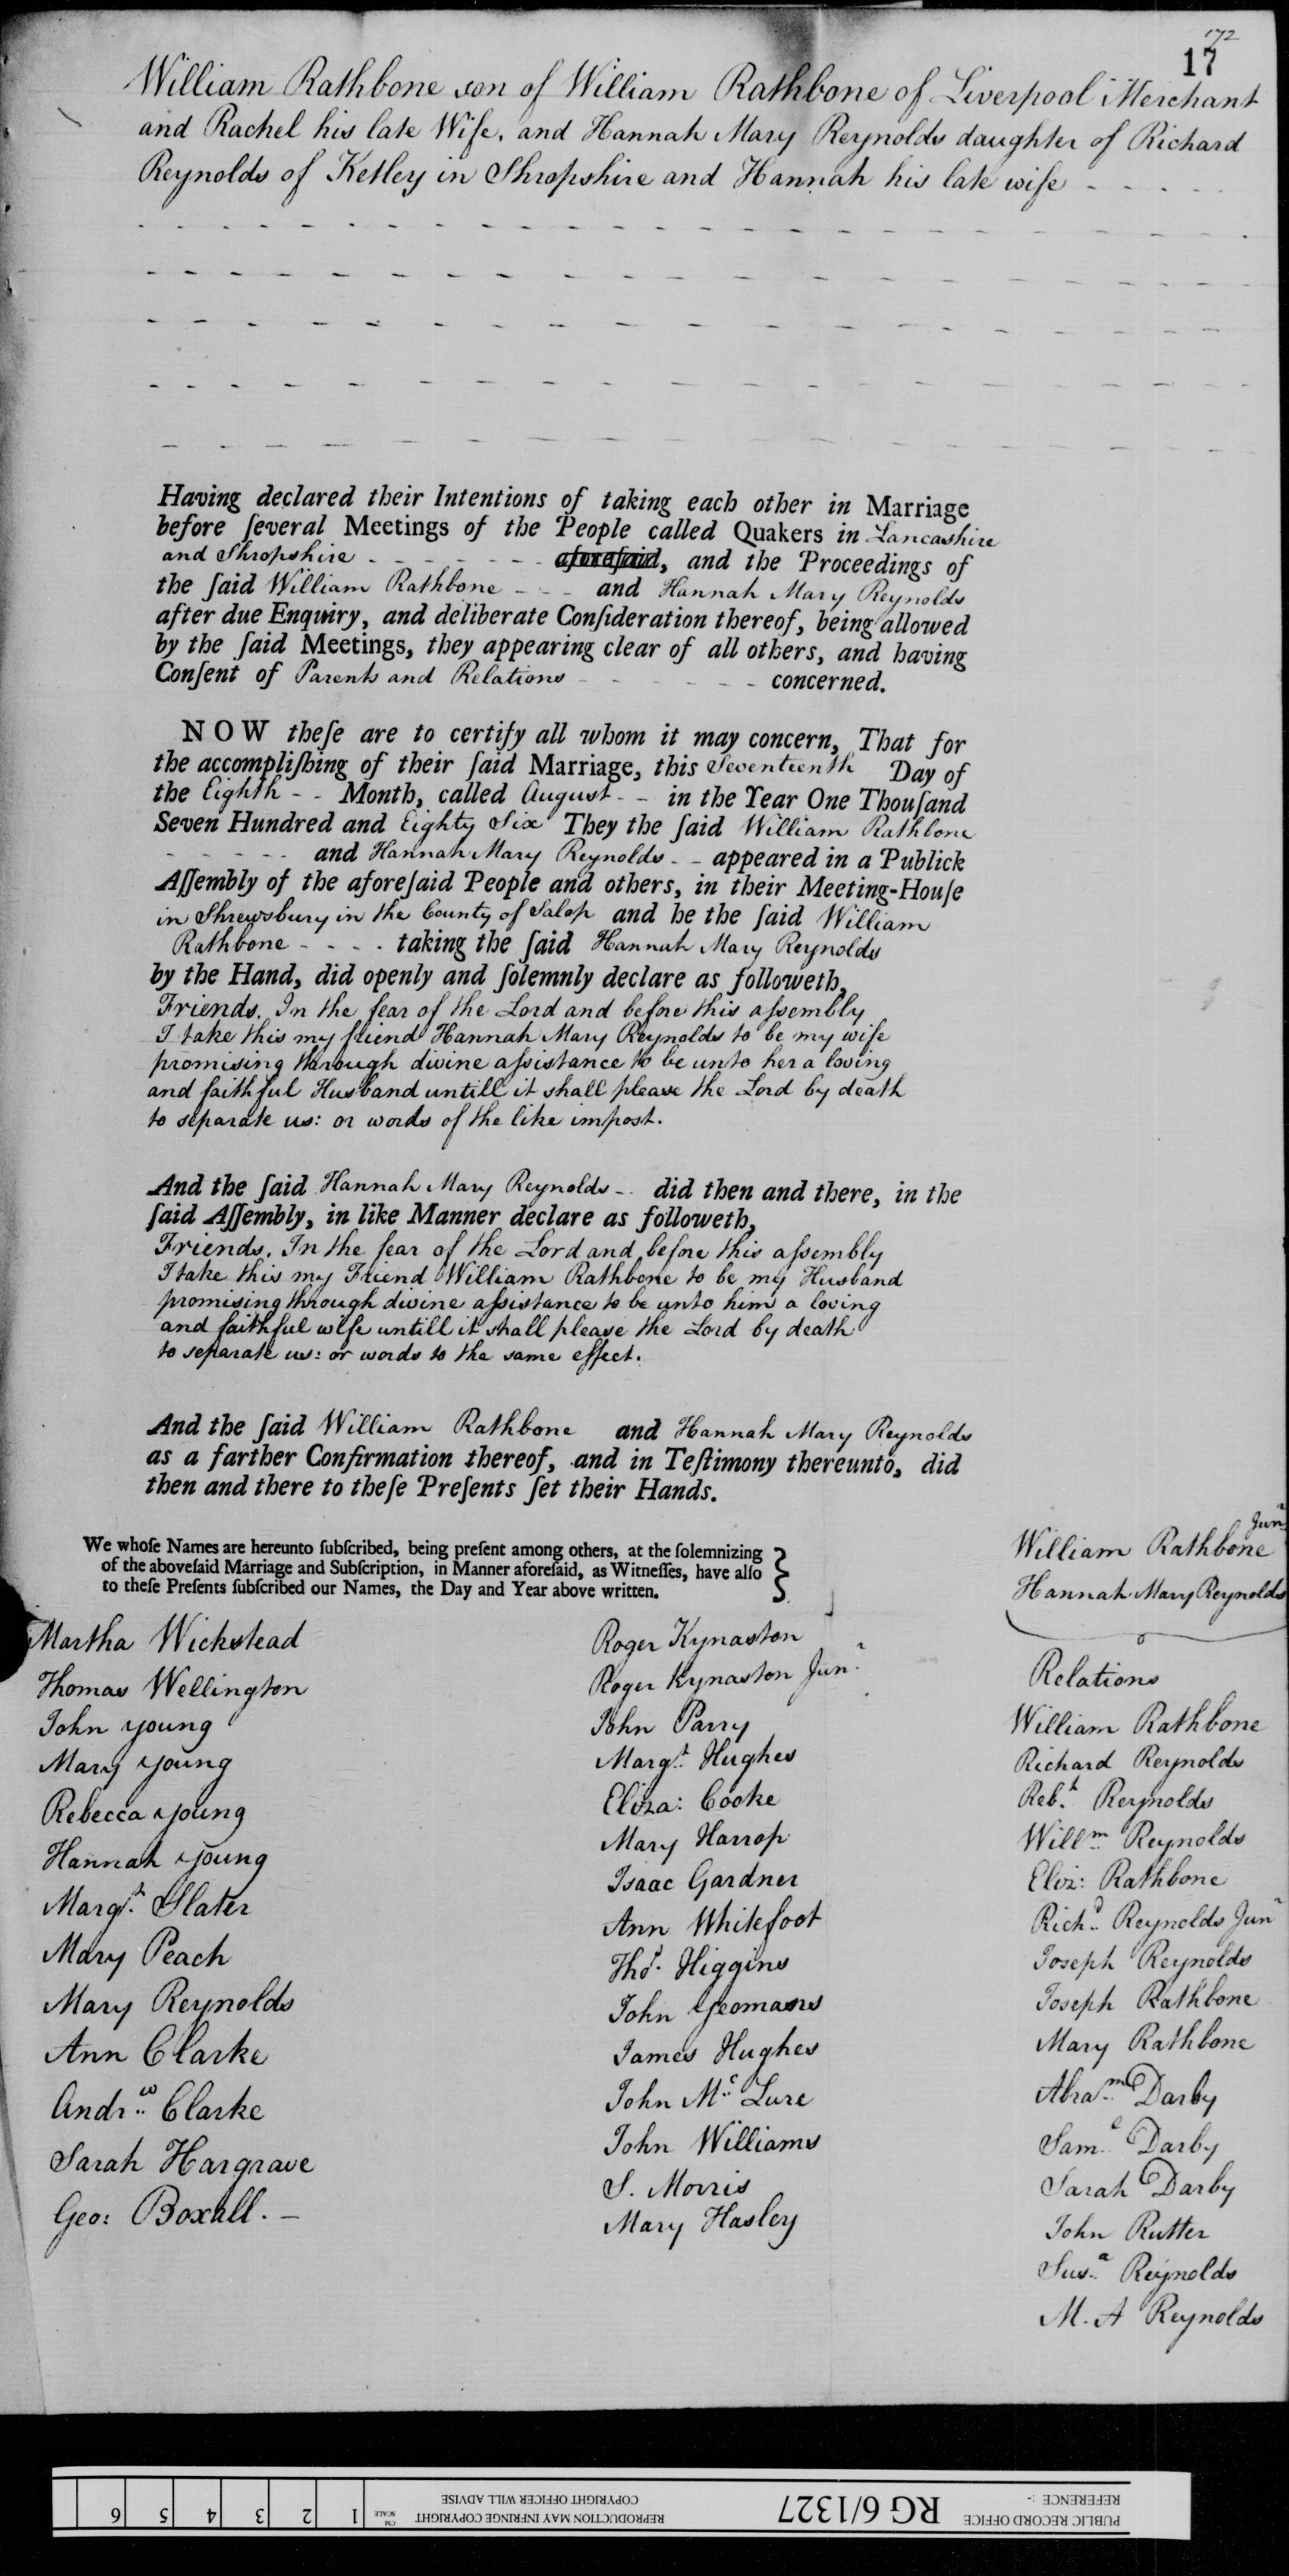 172
17
William Rathbone son of William Rathbone of Liverpool Merchant
and Rachel his late Wife, and Hannah Mary Reynolds daughter of Richard
Reynolds of Ketley in Shropshire and Hannah his late wife
Having declared their Intentions of taking each other in Marriage
before ſeveral Meetings of the People called Quakers in Lancashire
and Shropshire aforeſaid, and the Proceedings of
the ſaid William Rathbone and Hannah Mary Reynolds
after due Enquiry, and deliberate Conſideration thereof, being allowed
by the ſaid Meetings, they appearing clear of all others, and having
Conſent of Parents and Relations concerned.
NOW theſe are to certify all whom it may concern, That for
the accompliſhing of their ſaid Marriage, this Seventeenth Day of
the Eighth Month, called August in the Year One Thouſand
Seven Hundred and Eighty Six They the ſaid William Rathbone
and Hannah Mary Reynolds appeared in a Publick
Aſſembly of the aforeſaid People and others, in their Meeting-Houſe
in Shrewsbury in the County of Salop and he the ſaid William
Rathbone taking the ſaid Hannah Mary Reynolds
by the Hand, did openly and ſolemnly declare as followeth,
Friends. In the fear of the Lord and before this aſsembly
I take this my friend Hannah Mary Reynolds to be my wife
promising through divine aſsistance to be unto her a loving
and faithful Husband untill it shall please the Lord by death
to separate us: or words of the like impost.
And the ſaid Hannah Mary Reynolds did then and there, in the
ſaid Aſſembly, in like Manner declare as followeth,
Friends. In the fear of the Lord and before this aſsembly
I take this my Friend William Rathbone to be my Husband
promising through divine aſsistance to be unto him a loving
and faithful wife untill it shall please the Lord by death
to separate us: or words to the same effect.
And the ſaid William Rathbone and Hannah Mary Reynolds
as a farther Confirmation thereof, and in Teſtimony thereunto, did
then and there to theſe Preſents ſet their Hands.
We whoſe Names are hereunto ſubſcribed, being preſent among others, at the ſolemnizing
of the aboveſaid Marriage and Subſcription, in Manner aforeſaid, as Witneſſes, have alſo
to theſe Preſents ſubſcribed our Names, the Day and Year above written.
William Rathbone Junr
Hannah Mary Reynolds
Martha Wickstead
Thomas Wellington
John Young
Mary Young
Rebecca Young
Hannah Young
Margt. Slater
Mary Peach
Mary Reynolds
Ann Clarke
Andrw. Clarke
Sarah Hargrave
Geo: Boxall. -
Roger Kynaston
Roger Kynaston Junr.
John Parry
Margt. Hughes
Eliza: Cooke
Mary Harrop
Isaac Gardner
Ann Whitefoot
Thos. Higgins
John Yeomans
James Hughes
John Mc Lure
John Williams
S. Morris
Mary Hasley
Relations
William Rathbone
Richard Reynolds
Reb.a Reynolds
Willm Reynolds
Eliz: Rathbone
Richd. Reynolds Junr
Joseph Reynolds
Joseph Rathbone
Mary Rathbone
Abram. Darby
Saml. Darby
Sarah Darby
John Rutter
Susa. Reynolds
M. A Reynolds
PUBLIC RECORD OFFICE
REFERENCE :-
RG 6/1327
REPRODUCTION MAY INFRINGE COPYRIGHT
COPYRIGHT OFFICER WILL ADVISE
CM
SCALE
1 2 3 4 5 6